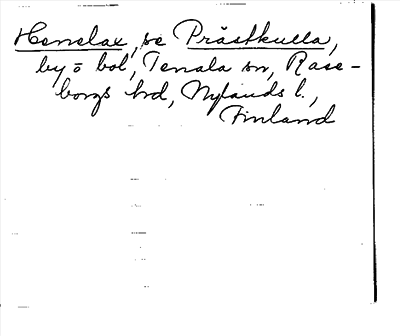 Henelax, se Prästkulla,
by o bol, Tenala sn, Rase-
borgs hrd, Nylands l.,
Finland